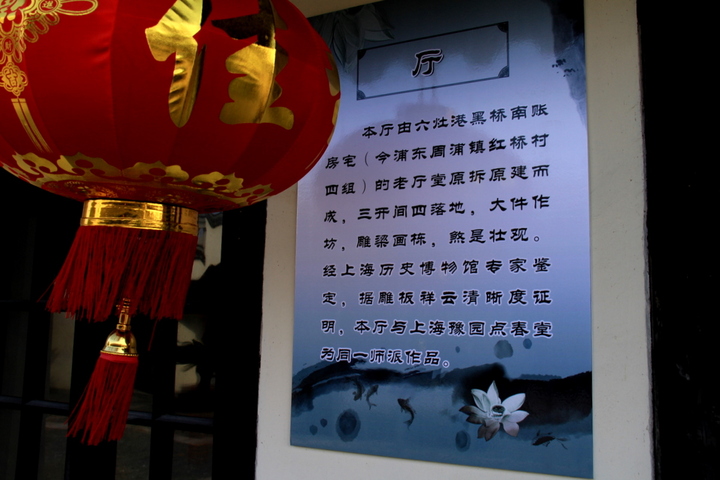 佳
厅
本厅由六灶港黑桥南账
房宅（今浦东周浦镇红桥村
四组）的老厅堂原拆原建而
成，三开间四落地，大件作
坊，雕梁画栋，煞是壮观。
经上海历史博物馆专家鉴
定，据雕板祥云清晰度证
明，本厅与上海豫园点春堂
为同一师派作品。